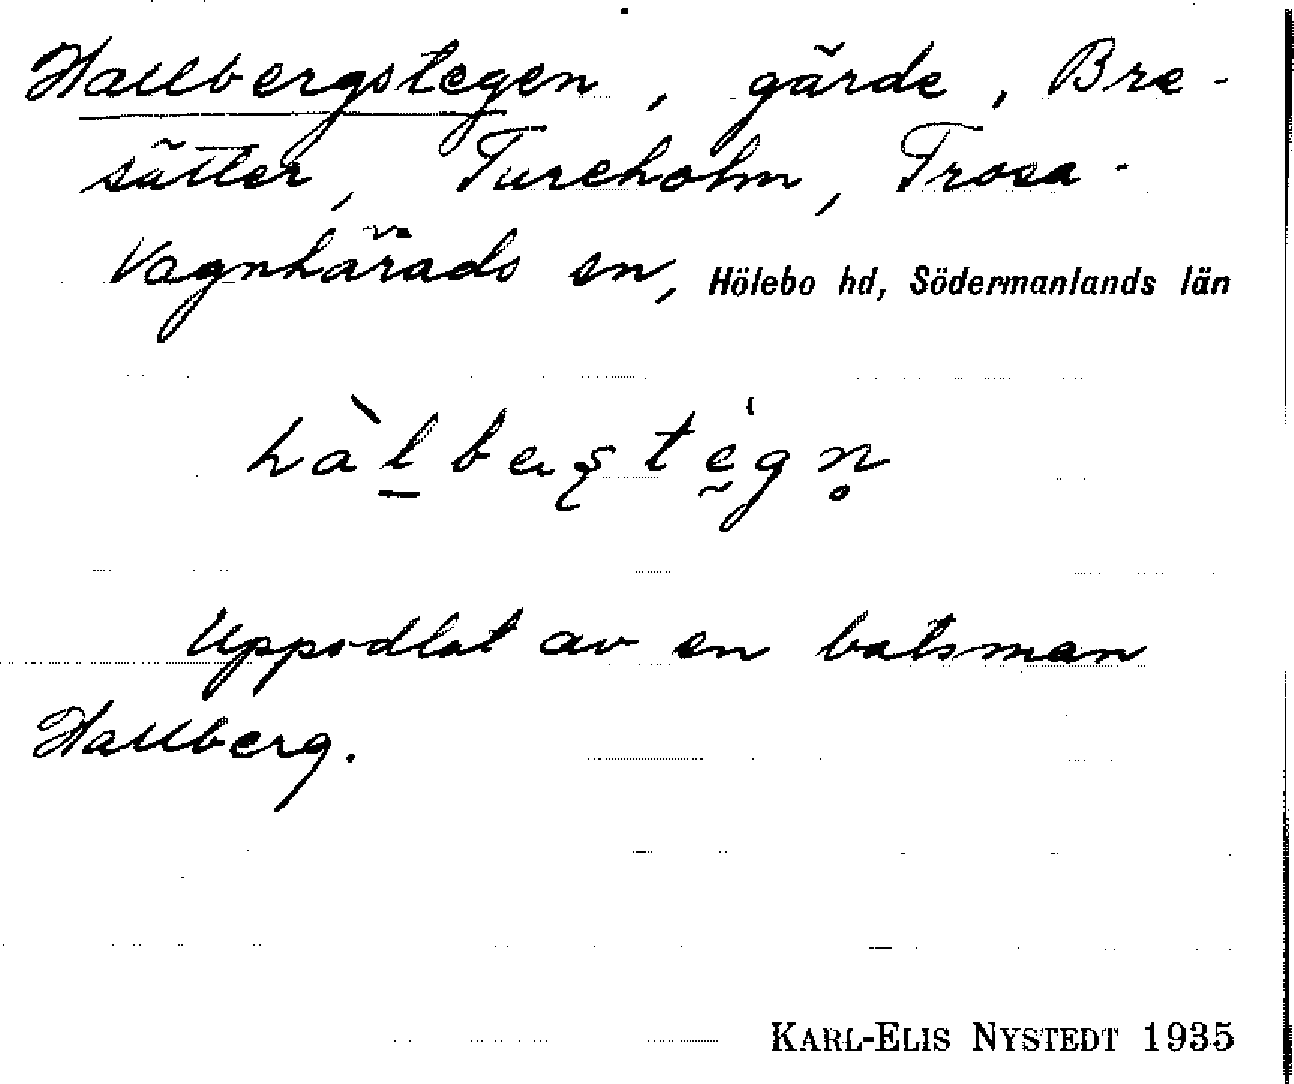 Hallbergstegen, gärde, Bre-
sätter, Tureholm, Trosa-
Vagnhärads sn, Hölebo hd, Södermanlands län
hàl̠bers̨tḛ̇gn̥
Uppodlat av en batsman
Hallberg.
KARL-ELIS NYSTEDT 1935